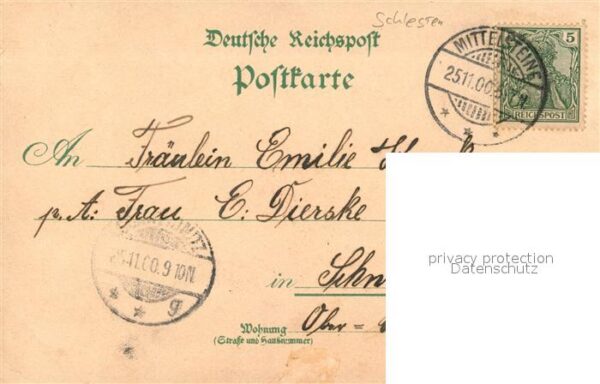 Schlesien
Deutsche Reichspost
Postkarte
MITTELSTEINE
25.11.00.
5
REICHSPOST
An Fräulein Emilie
p. A: Frau E: Dierske
11.00.9-10N.
g
in
Ober =
Wohnung
(Straße und Hausnummer)
privacy protection
Datenschutz